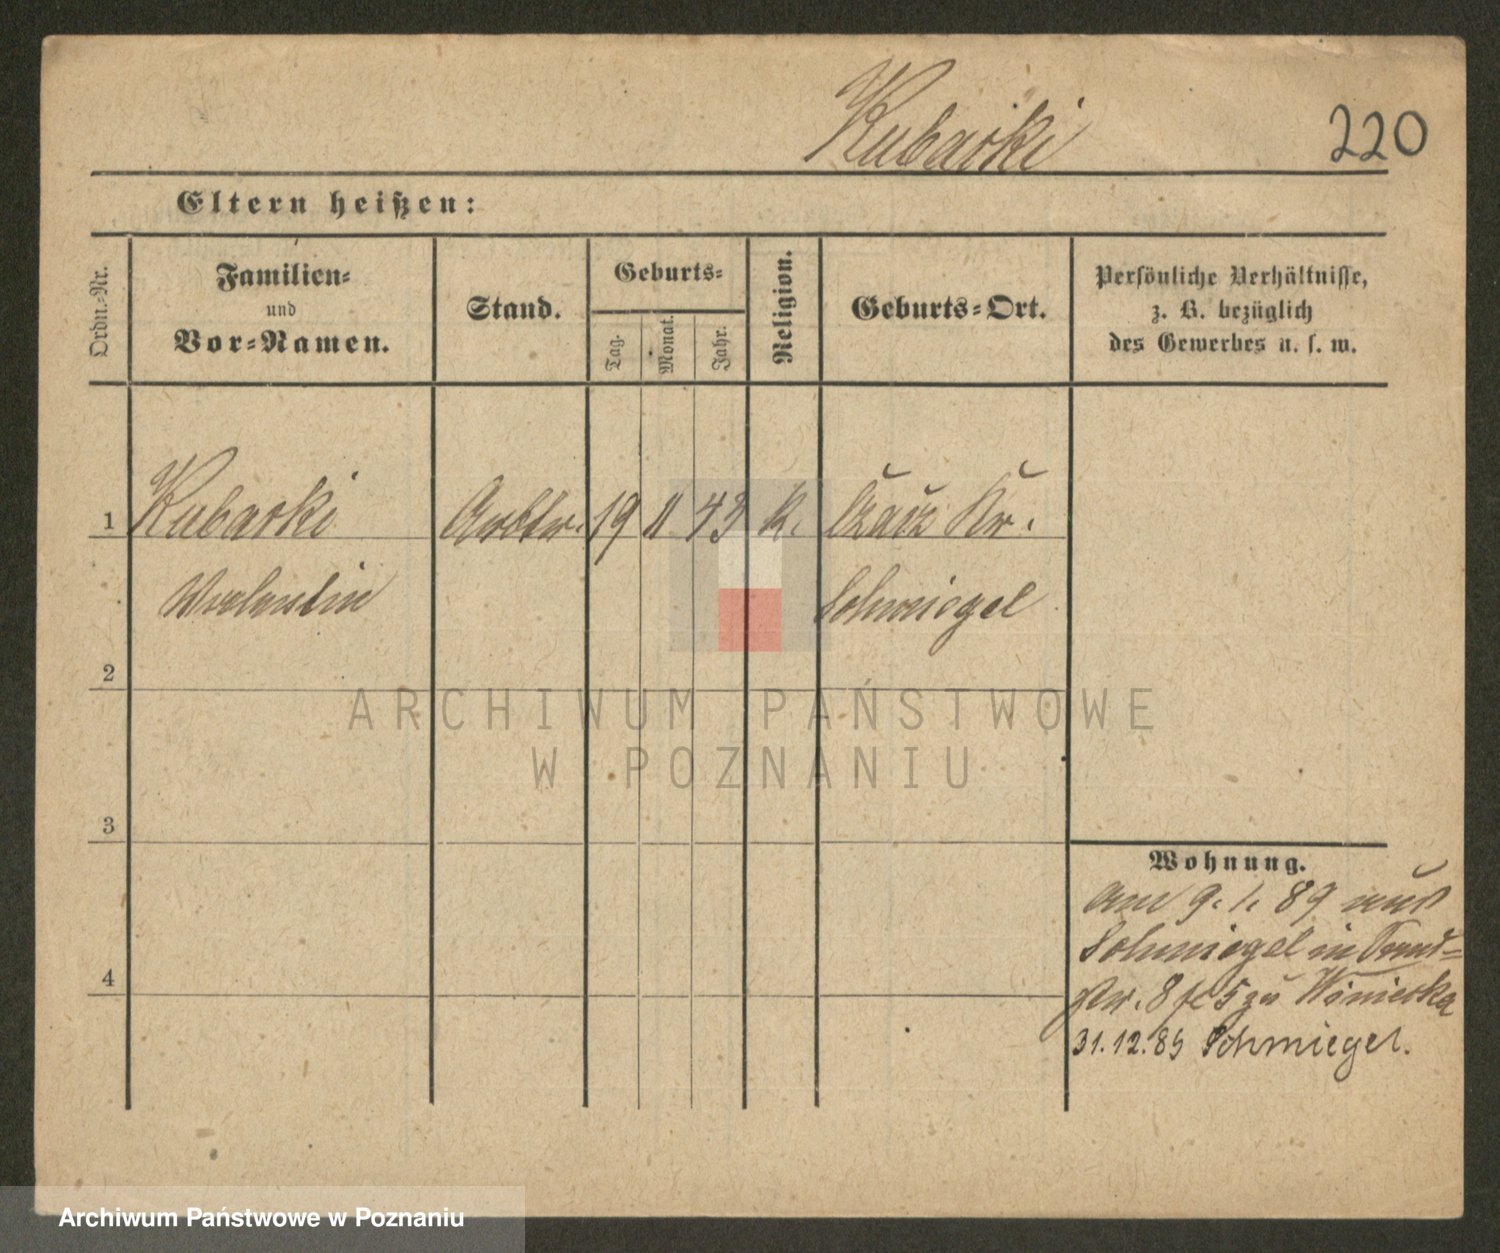 Kubacki
220
Eltern heißen:
Ordn.-Nr.
Familien-
und
Vor-Namen.
Stand.
Geburts-
Tag.
Monat.
Jahr.
Religion.
Geburts-Ort.
Persönliche Verhältnisse,
z. B. bezüglich
des Gewerbes u. s. w.
1
Kubacki
Arbtr.
19
11
43
K.
Kr.
Valentin
Schmiegel
2
ARCHIWUM PAŃSTWOWE
W POZNANIU
3
Wohnung.
am 9. 1. 89 aus
Schmiegel in
4
8 zu
31.12.89 Schmiegel.
Archiwum Państwowe w Poznaniu